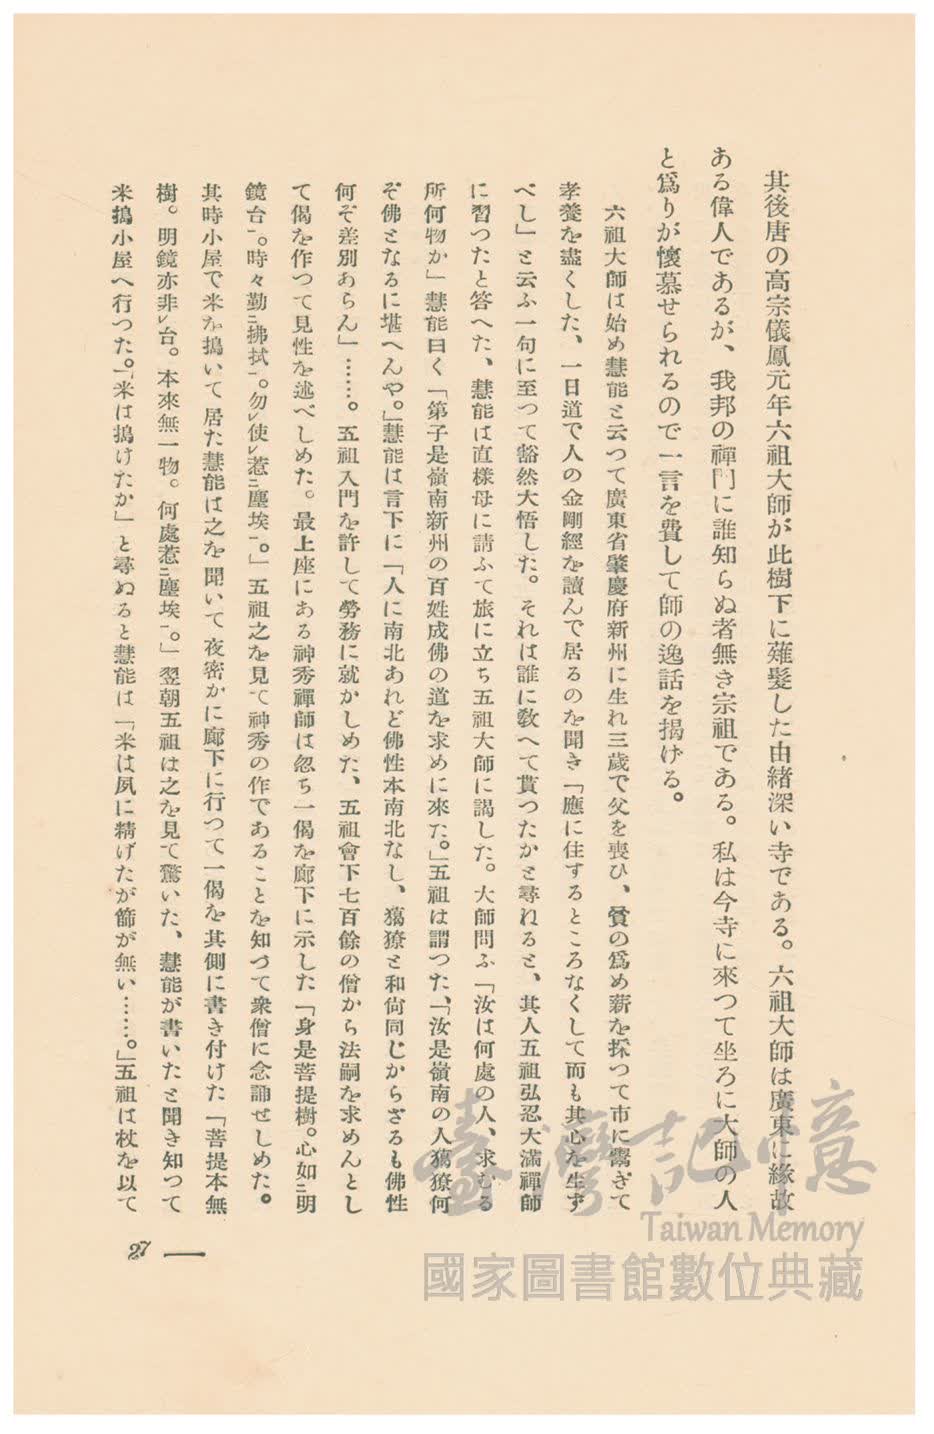 其後唐の高宗儀鳳元年六祖大師が此樹下に薙髮した由緒深い寺である。六祖大師は廣東に緣故
ある偉人であるが、我邦の禪門に誰知らぬ者無き宗祖である。私は今寺に來つて坐ろに大師の人
と爲りが懷慕せられるので一言を費して師の逸話を揭げる。
六祖大師は始め慧能と云つて廣東省肇慶府新州に生れ三歲で父を喪ひ、貧の爲め薪を採つて市に鬻ぎて
孝養を盡くした、一日道で人の金剛經を讀んで居るのを聞き「應に住するところなくして而も其心を生ず
べし」と云ふ一句に至つて豁然大悟した。それは誰に敎へて貰つたかと尋ねると、其人五祖弘忍大滿禪師
に習つたと答へた、慧能は直樣母に請ふて旅に立ち五祖大師に謁した。大師問ふ「汝は何處の人、求むる
所何物か」慧能曰く「第子是嶺南新州の百姓成佛の道を求めに來た。」五祖は謂つた、「汝是嶺南の人獦獠何
ぞ佛となるに堪へんや。」慧能は言下に「人に南北あれど佛性本南北なし、獦獠と和尙同じからざるも佛性
何ぞ差別あらん」……。五祖入門を許して勞務に就かしめた、五祖會下七百餘の僧から法嗣を求めんとし
て偈を作つて見性を述べしめた。最上座にある神秀禪師は忽ち一偈を廊下に示した「身是菩提樹。心如ニ明
鏡台一。時々勤ニ拂拭一。勿レ使レ惹ニ塵埃一。」五祖之を見て神秀の作であることを知つて衆僧に念誦せしめた。
其時小屋で米を搗いて居た慧能は之を聞いて夜密かに廊下に行つて一偈を其側に書き付けた「菩提本無
樹。明鏡亦非レ台。本來無一物。何處惹ニ塵埃一。」翌朝五祖は之を見て驚いた、慧能が書いたと聞き知つて
米搗小屋へ行つた。「米は搗けたか」と尋ぬると慧能は「米は夙に精げたが篩が無い……。」五祖は杖を以て
27
臺灣記憶
Taiwan Memory
國家圖書館數位典藏